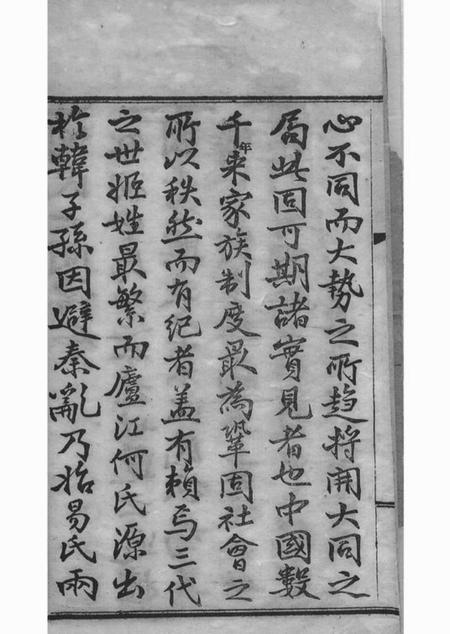 心不同而大勢之所趋將開大同之
局此固可期諸實見者也中國數
千年来家族制度最為鞏固社會之
所以秩然而有紀者盖有賴焉三代
之世姬姓最繁而廬江何氏源出
於韓子孫因避秦亂乃始易氏兩